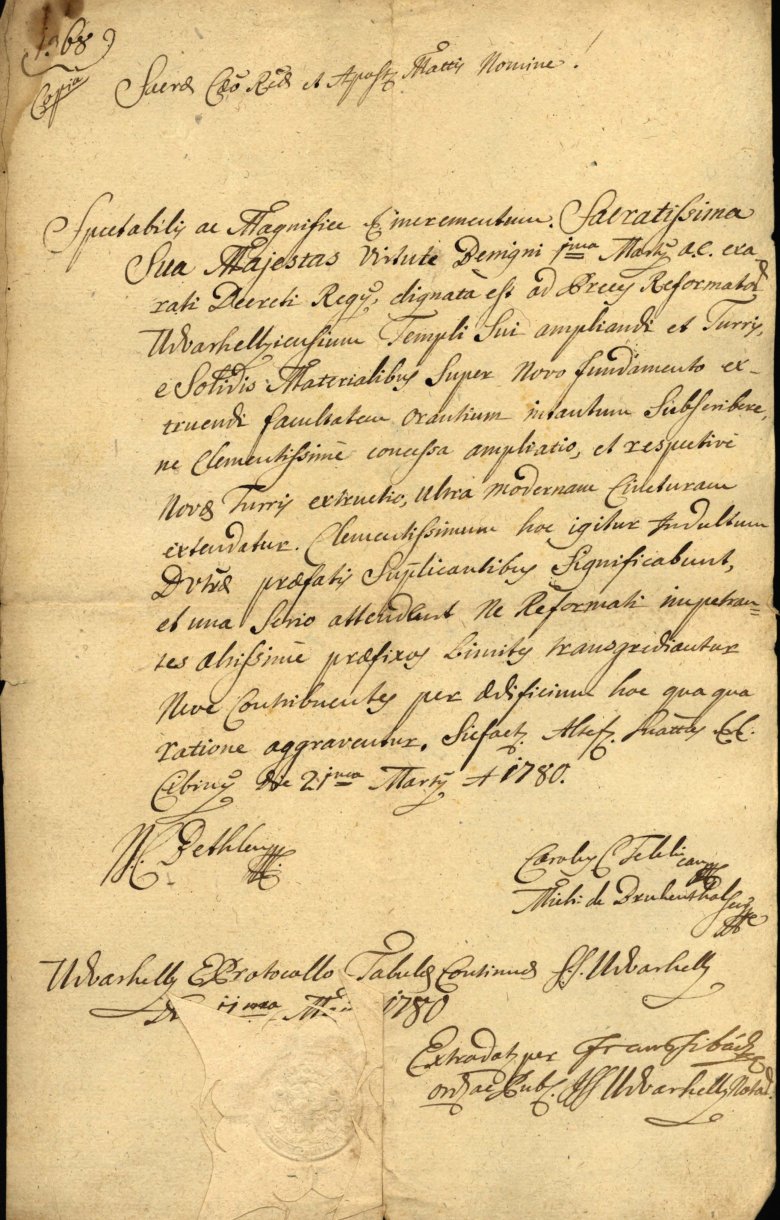 1368
Copia
Sacrae Caeo Reae et Aposty Mattis Nomine!
Spectabilis ac Magnifice &incrementum. Sacratissima
Sua Majestas Virtute Benigni 1ma Marty a.c. exa
rati Decreti Regy, dignata est ad Preces Reformator
Udvarhellyiensium Templi Sui ampliandi et Turris,
e Solidis Materialibus Super Novo fundamento ex-
truendi facultatem Orantium intantum Subscribere,
ne Clementissime concessa ampliatio, et respective
Novae Turris extructio, Ultra modernam Cincturam
extendatur. Clementissimum hoc igitur Indultum
Dvtrae praefatis Supplicantibus Significabunt,
et una Serio attendent Ne Reformati impetran=
tes altissime praefixos Limites transgrediantur
Neve Contribuentes per aedificium hoc qua qua
ratione aggraventur. Sicfact. Altef. Mattas &c.
Cibiny die 21ma Marty A 1780.
N. Bethlen
Carolus C Teleki can
Mich: de Brukenthal Secr
Udvarhelly E Protocollo Tabulae Continuae S.S. Udvarhelly
11ma 1780
Extradat per
ord ac Pub. Udvarhelly Notar